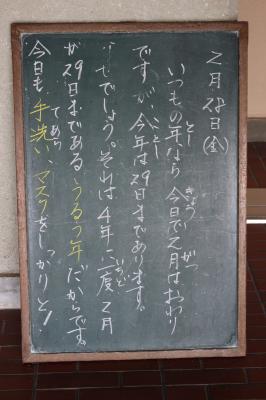 2月28日(金)
いつもの年なら今日で2月はおわり
ですが、今年は29日まであります。
でしょう。それは4年に一度2月
が29日まである、うるう年だからです。
今日も手洗い、マスクをしっかりと!